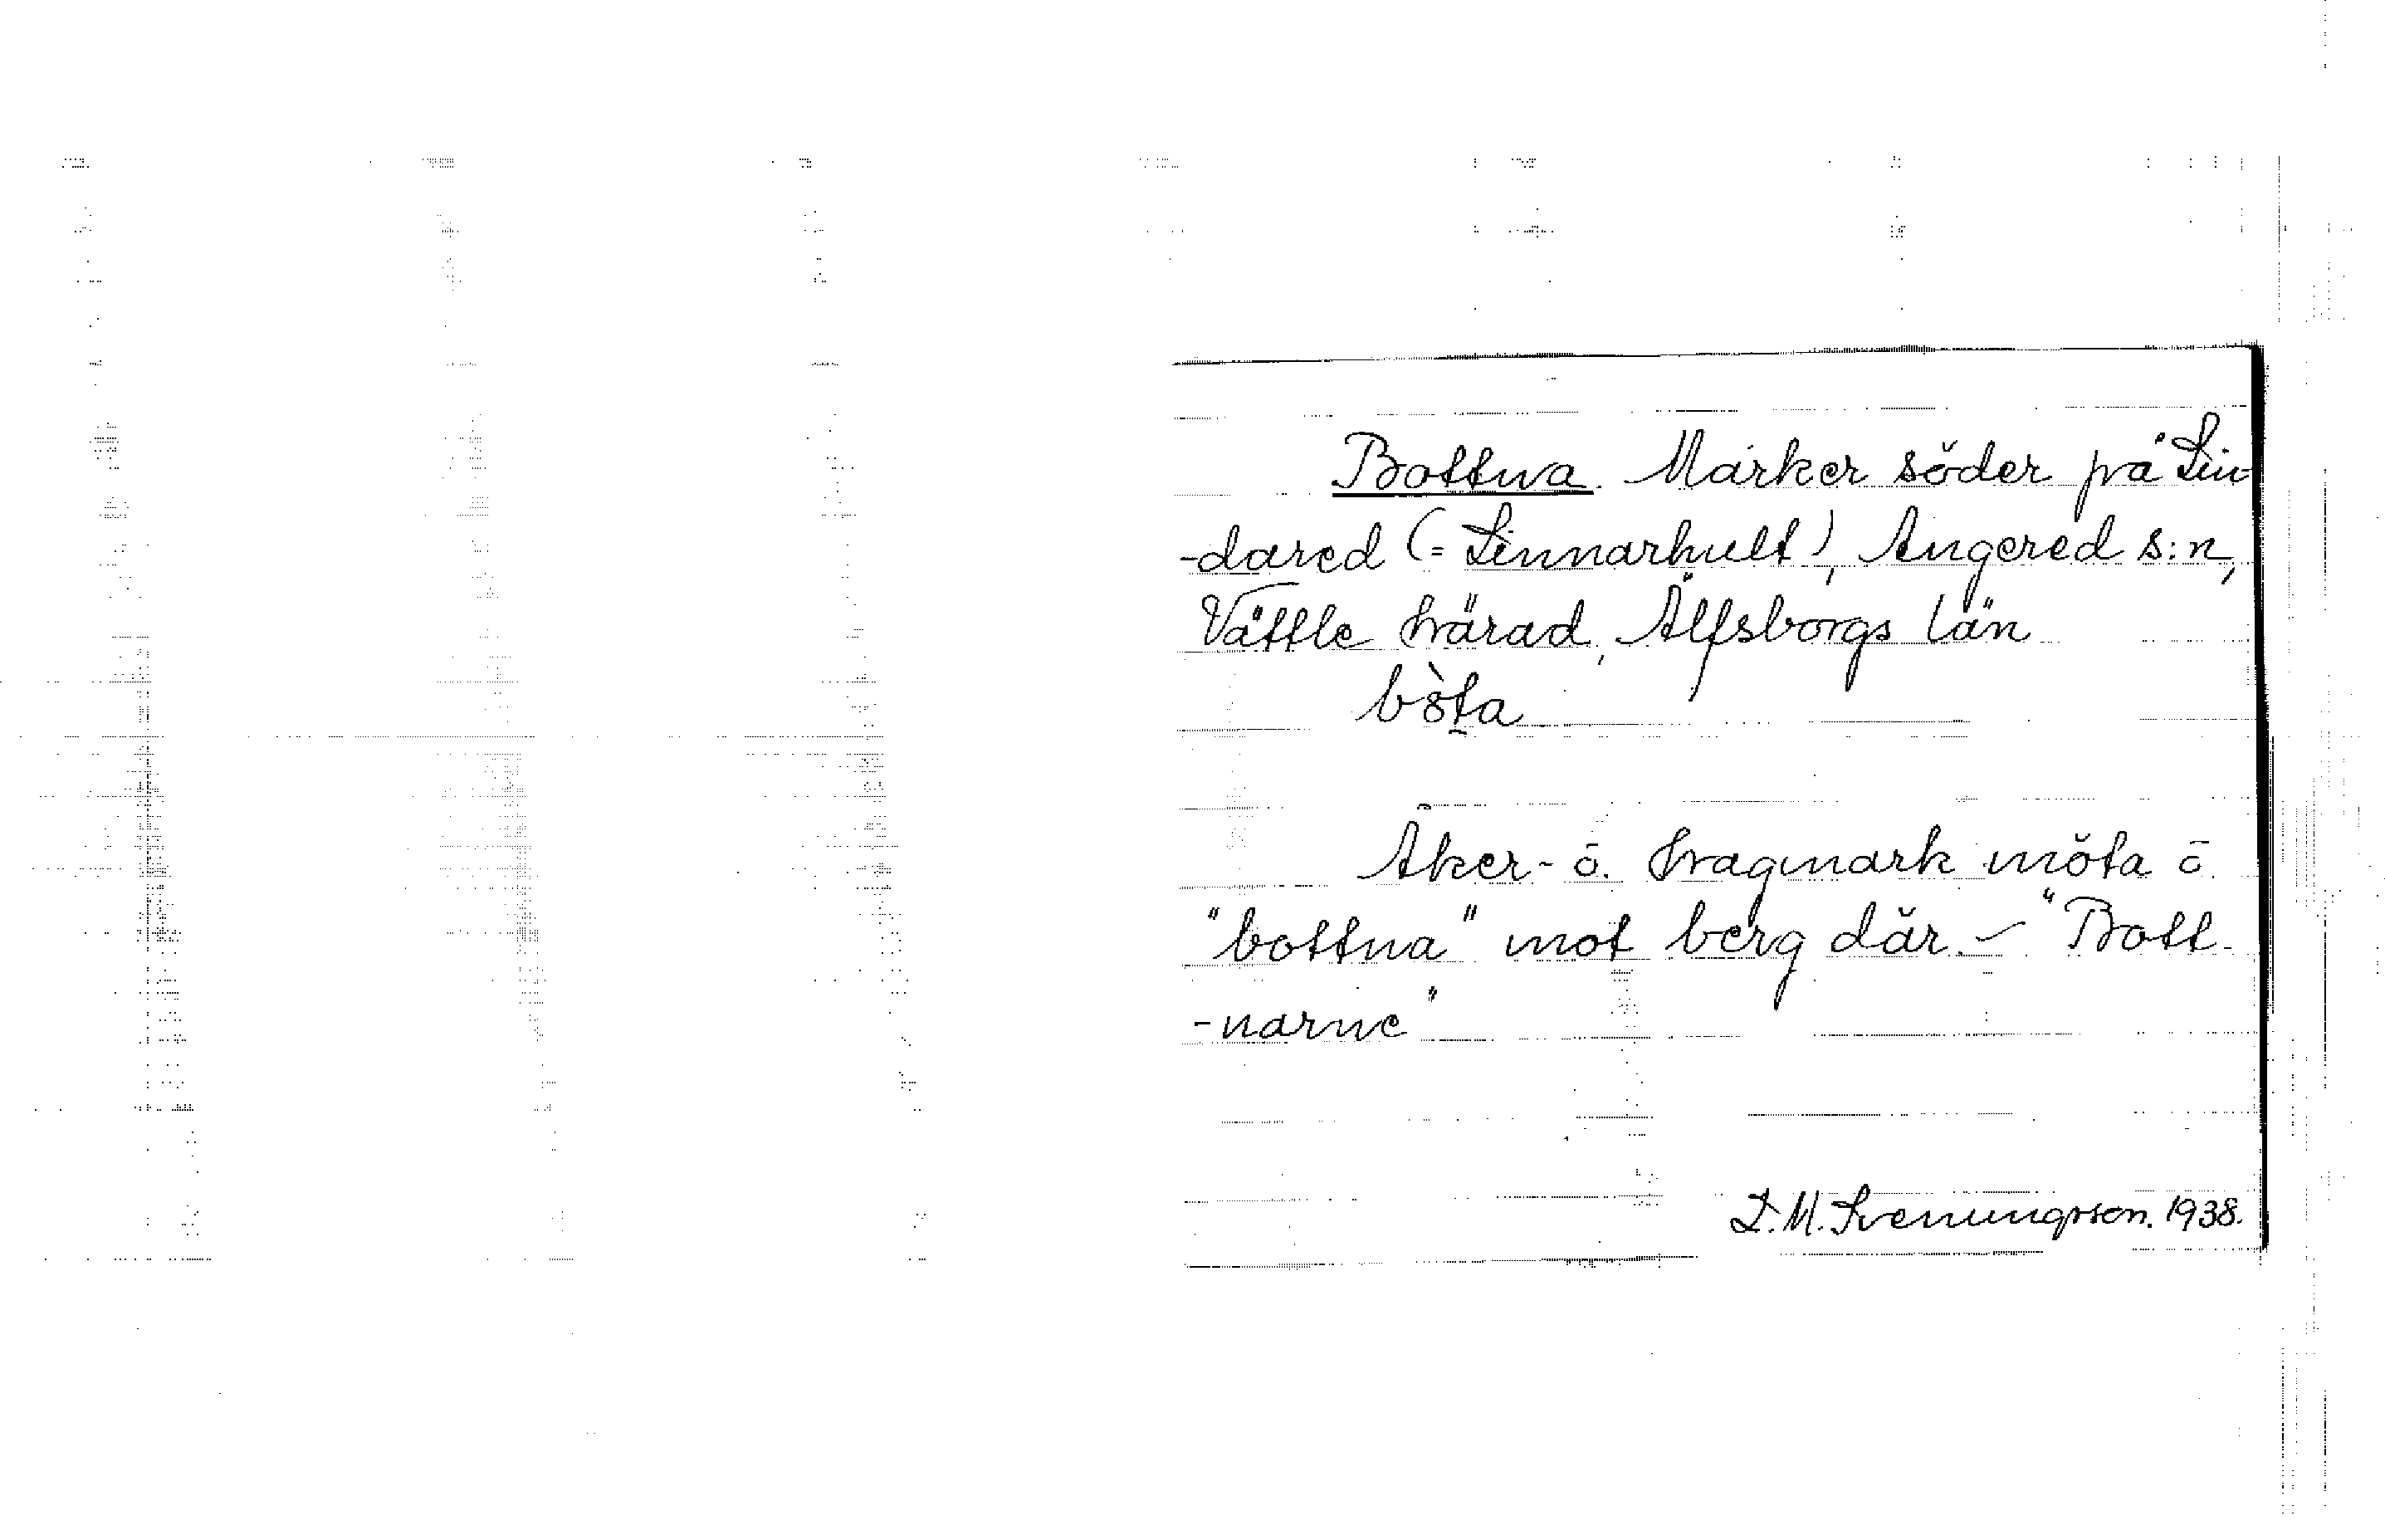 Bottna. Marker söder på Lin-
-dared (= Linnarhult), Angered s:n,
Vättle härad, Älfsborgs län
bòta
Åker- o. hagmark möta o.
"bottna" mot berg där. – "Bott-
-narne"
L. M. Svenungsson. 1938.